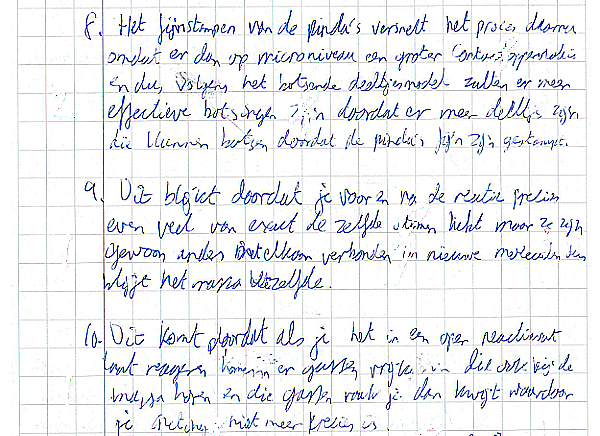 8. Het fijnstampen van de pinda's versnelt het proces daarom
omdat er dan op microniveau een groter contactoppervlakte
en dus volgens het botsende deeltjesmodel zullen er meer
effectieve botsingen zijn doordat er meer deeltjes zijn
die kunnen botsen doordat de pinda's fijn zijn gestampt.
9. Dit blijkt doordat je voor en na de reactie precies
even veel van exact de zelfde atomen hebt maar ze zijn
gewoon anders met elkaar verbonden in nieuwe moleculen dus
blijft het massa hetzelfde.
10. Dit komt doordat als je het in een open reactievat
laat reageren komen er gassen vrij die ook bij de
massa horen en die gassen raak je dan kwijt waardoor
je niet meer precies is.